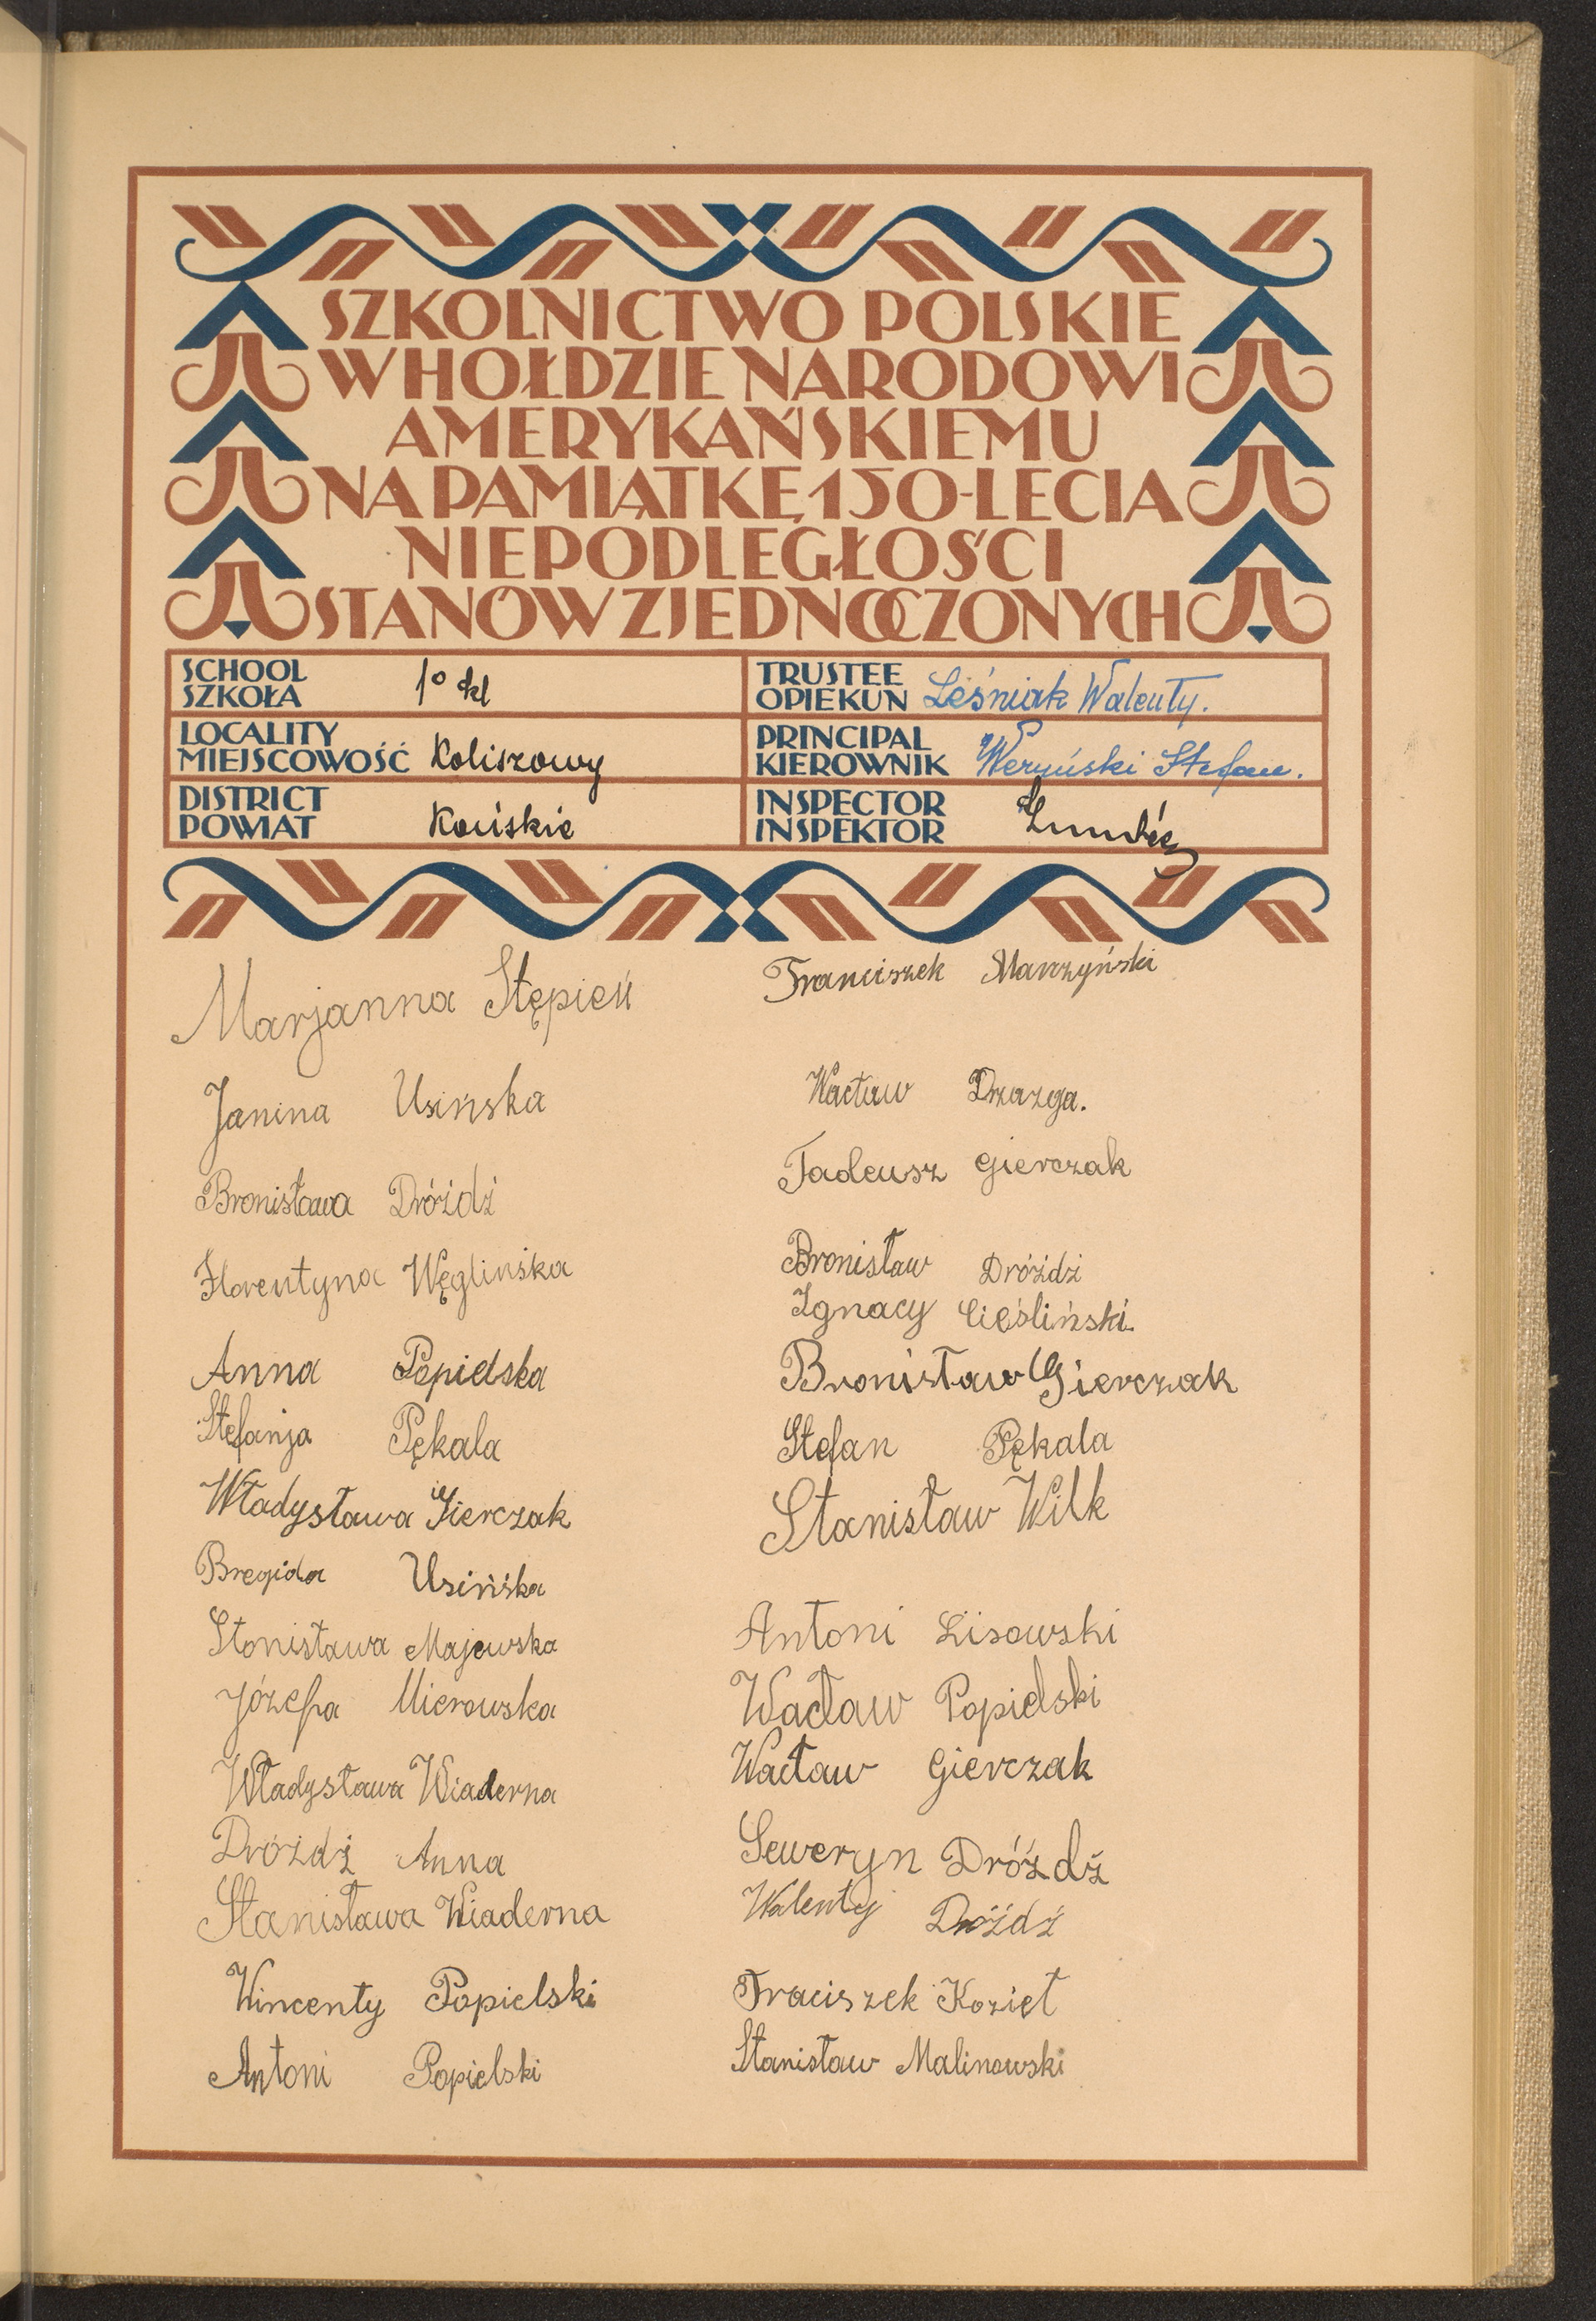 SZKOLNICTWO POLSKIE
W HOŁDZIE NARODOWI
AMERYKAŃSKIEMU
NA PAMIĄTKĘ 150-LECIA
NIEPODLEGŁOŚCI
STANÓW ZJEDNOCZONYCH
SCHOOL
SZKOŁA 1º kl
LOCALITY
MIEJSCOWOŚĆ Koliszowy
DISTRICT
POWIAT Końskie
TRUSTEE
OPIEKUN Leśniak Walenty.
PRINCIPAL
KIEROWNIK Weryński Stefan.
INSPECTOR
INSPEKTOR
Marjanna Stępień
Janina Usińska
Bronisława Dróżdż
Florentyna Węglińska
Anna Popielska
Stefanja Pękala
Władysława Gierczak
Bregida Usińska
Stonisława Majewska
Józefa Mierowska
Władysława Wiaderna
Dróżdż Anna
Stanisława Wiaderna
Wincenty Popielski
Antoni Popielski
Franciszek Marczyński
Wacław Drzazga.
Tadeusz Gierczak
Bronisław Dróżdż
Ignacy Cieśliński.
Bronisław Gierczak
Stefan Pękala
Stanisław Wilk
Antoni Lisowski
Wacław Popielski
Wacław Gierczak
Seweryn Dróżdż
Walenty Dróżdż
Fraciszek Kozieł
Stanisław Malinowski